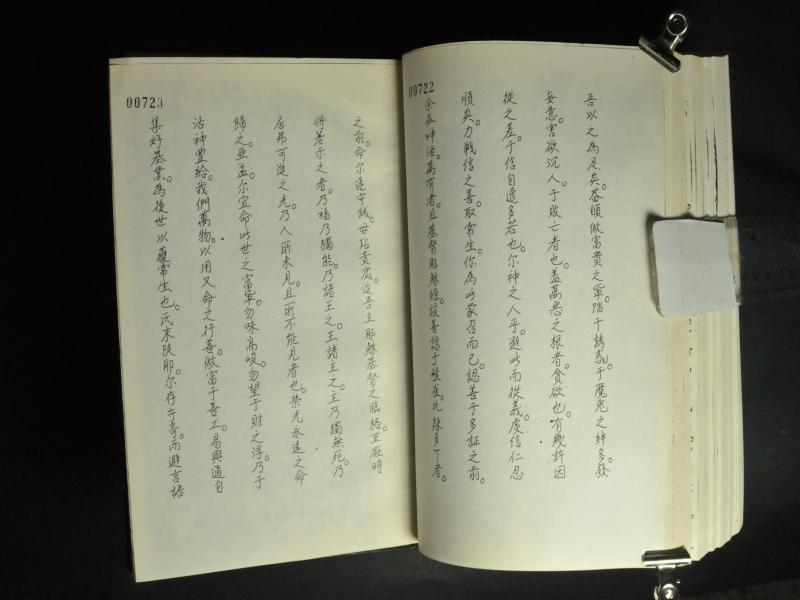 00722
吾以之為足矣。蓋願做富貴之軍陷于誘惑。于魔鬼之絆多發
妄意。害欲沉人于敗亡者也。盖萬惡之根者。貪欲也。有幾許因
從之差于信自遣多若也。尔神之人乎。避此而從義。虔信仁忍
順矣。力戰信之善。取常生。你為此蒙召而已。認善于多証之前。
余在神活。萬有者。且基督耶穌經
00723
之前。命尔遵守誡。毋玷責處迨吾主耶穌基督之臨格。至厥時
將著示之者。乃福乃獨能。乃諸王之王。諸主之主。乃獨無死。乃
居弗可進之光。乃人所未見。且所不能見者也。榮光永遠之命
歸之亜孟。尔宜命此世之富軍。勿味高峻。勿望于財之浮。乃于
活神豐給。我們萬物。以用又命之行善。做富于善工。易與通自
集好基業。為後世以獲常生也。氏末陡耶。尔存寺寄。而避言語